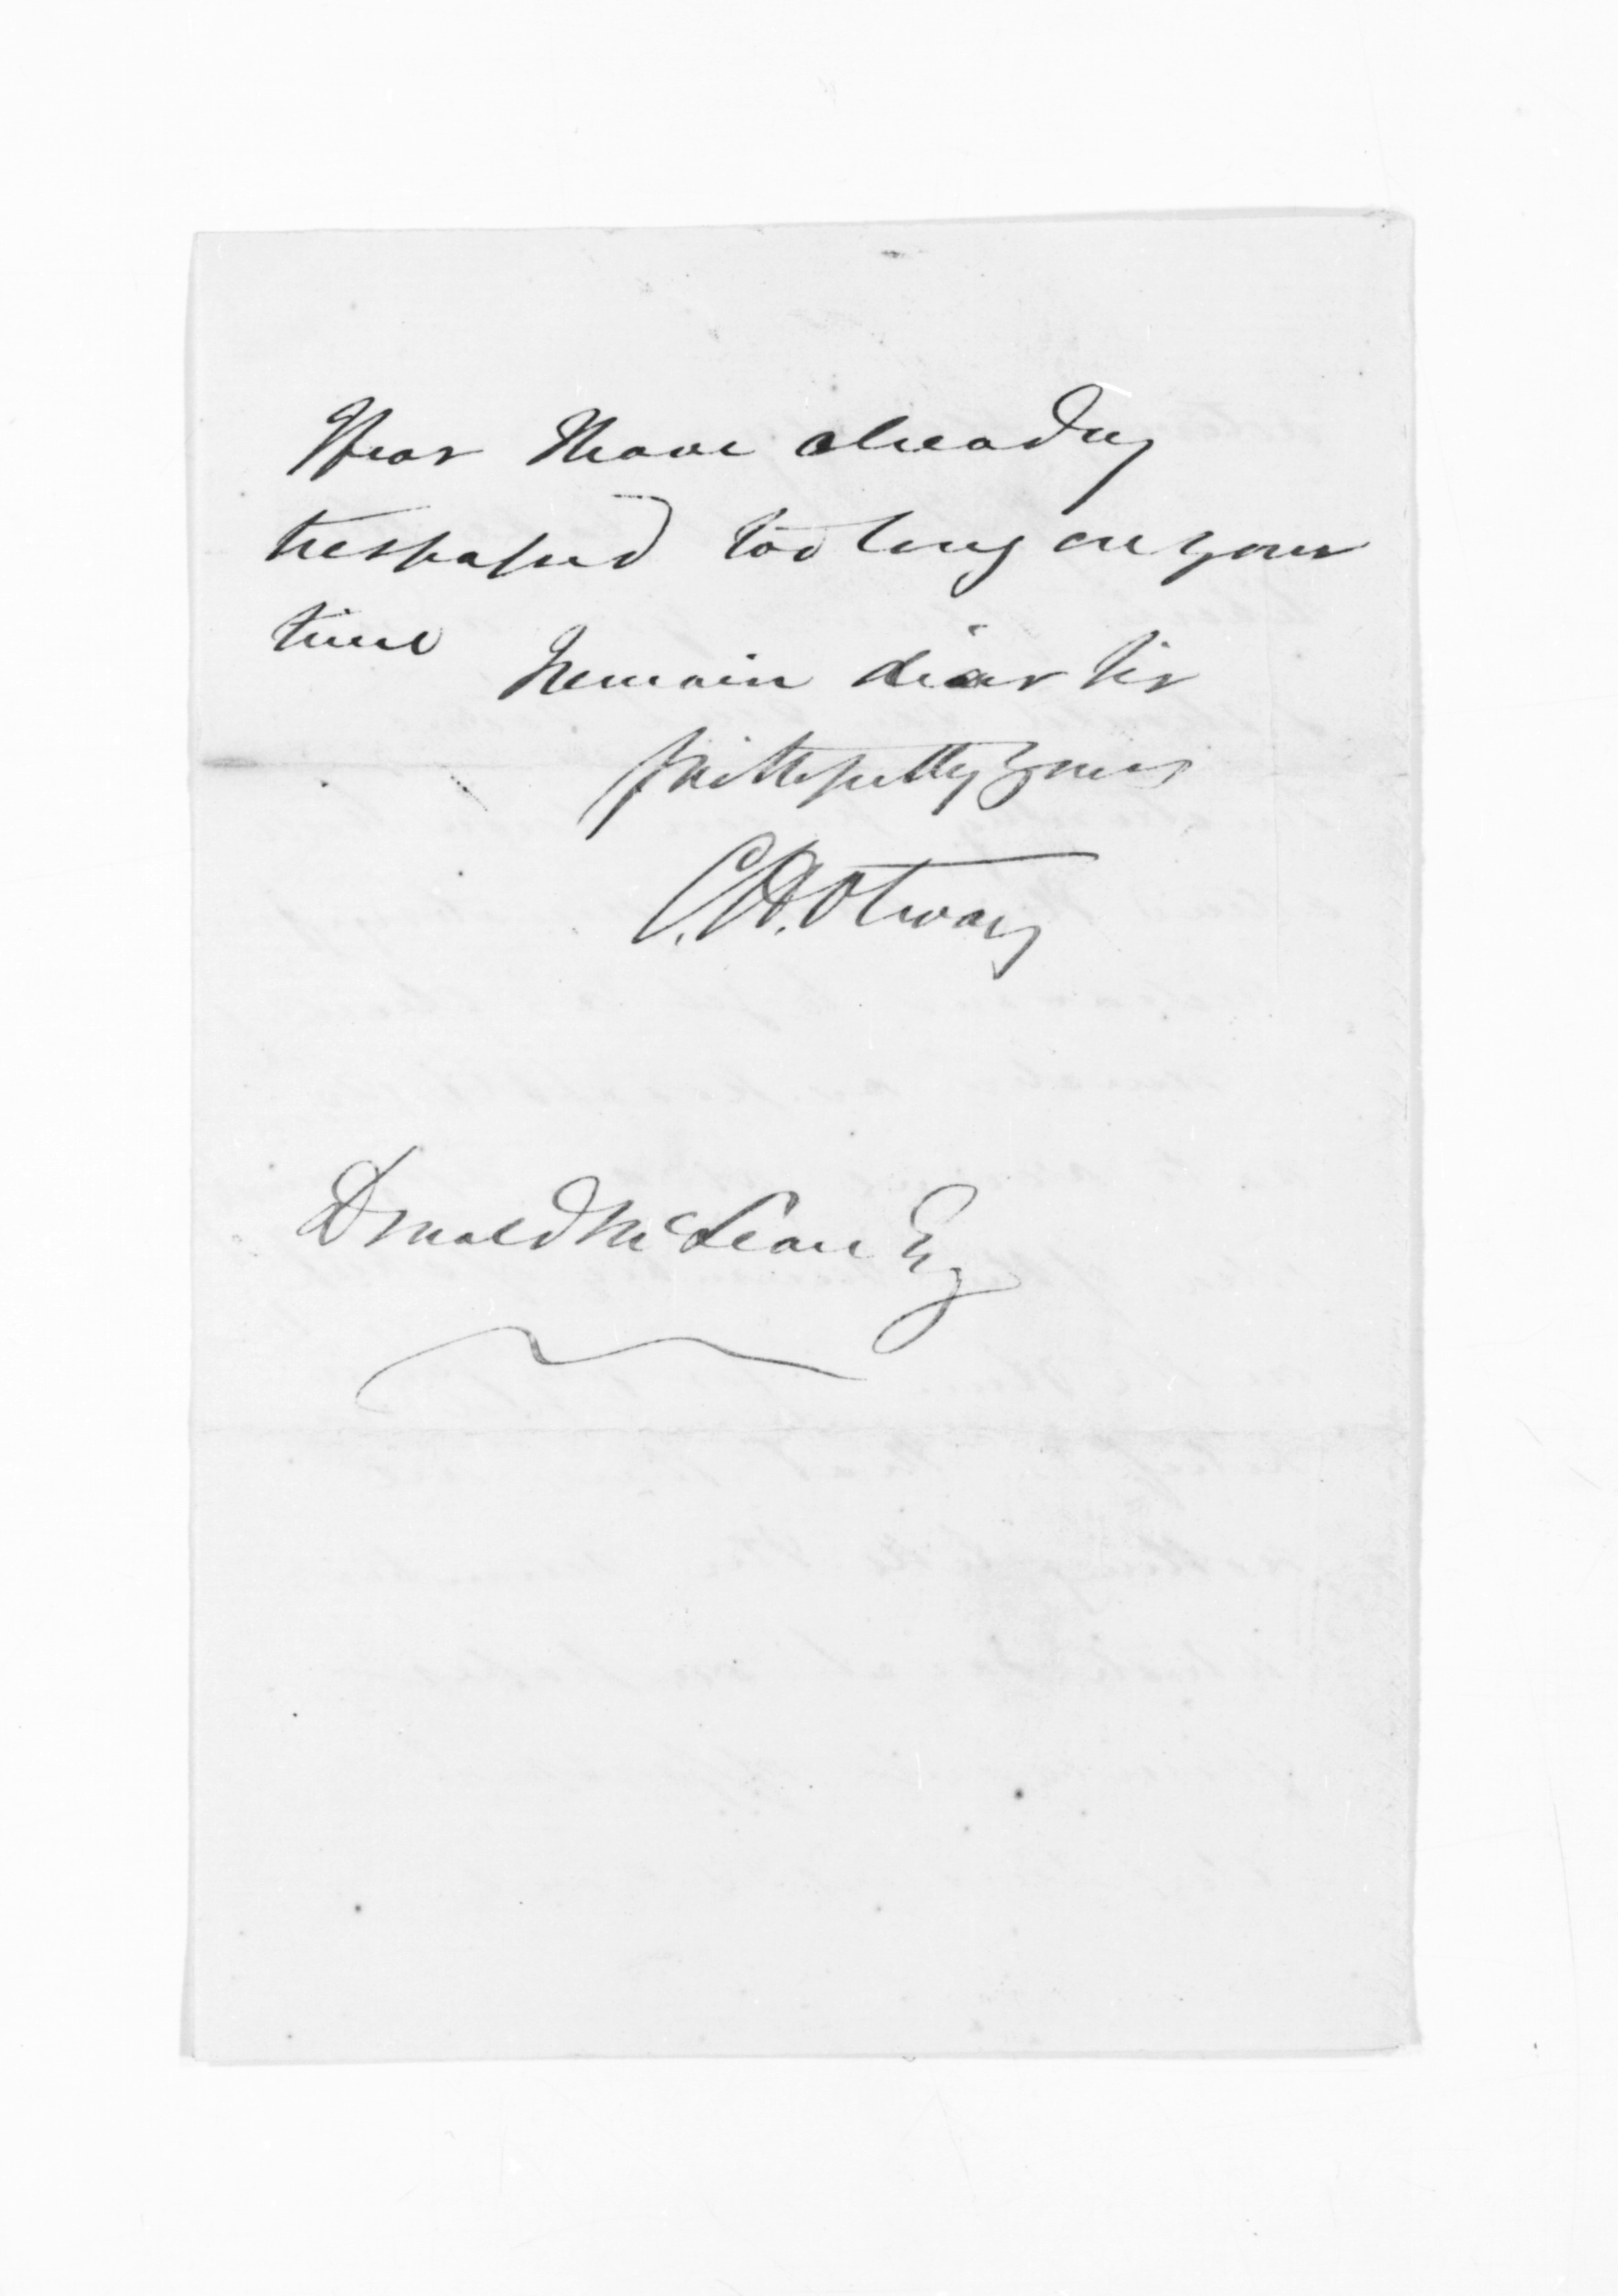 I fear I have already
trespassed too long on your
time
I remain dear Sir
faithfully yours
C.H. Otway
Donald McLean Esq